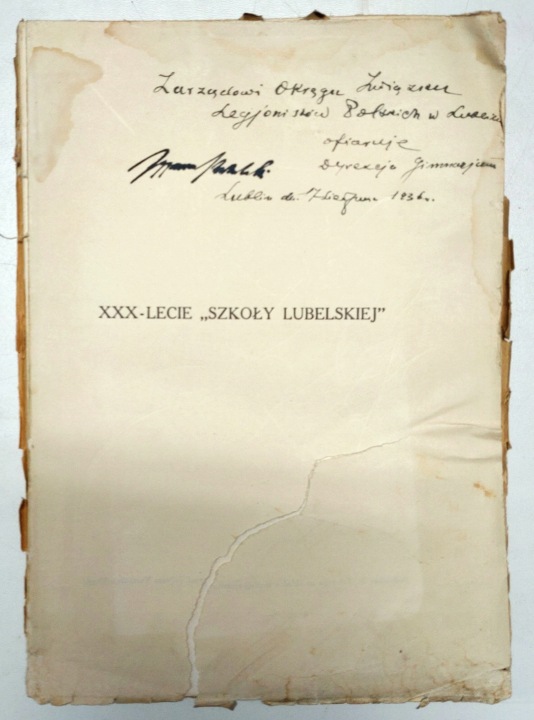 Zarządowi Okręgu Związku
Legjonistów Polskich w Lublinie
ofiaruje
Dyrekcja Gimnazjum
Lublin dn. 7 sierpnia 1936 r.
XXX-LECIE „SZKOŁY LUBELSKIEJ”